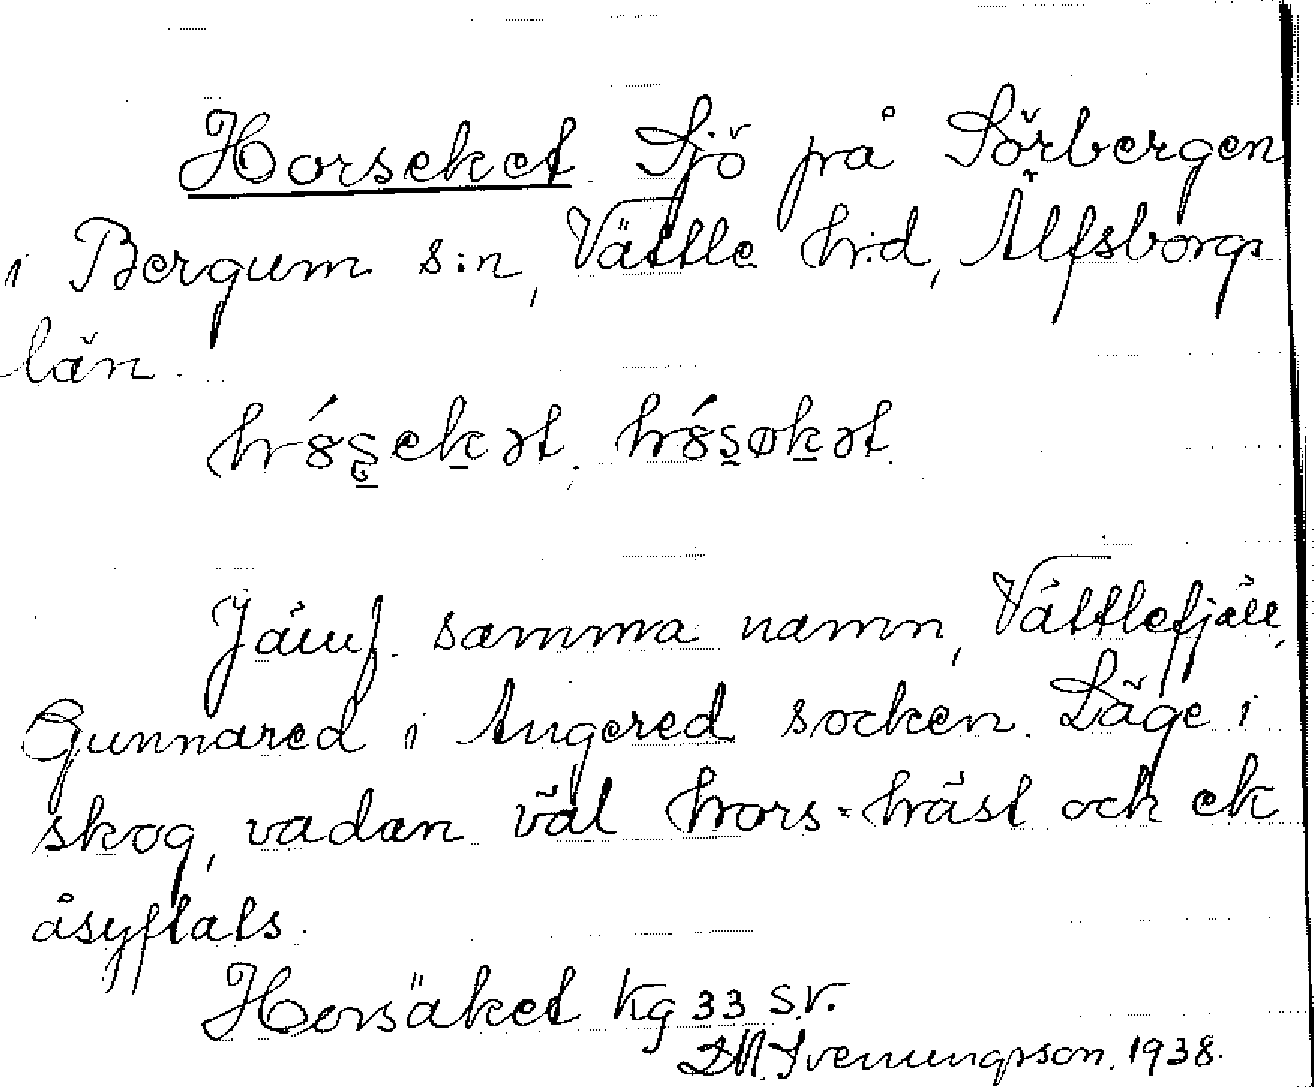 Horseket. Sjö på Sörbergen
i Bergum s:n, Vättle h:d, Älfsborgs
län.
Jämf. samma namn, Vättlefjäll,
Gunnared i Angered socken. Läge i
skog, vadan väl hors-häst och ek
åsyftats.
Horsäket Kg 33 s.v.
Svenungsson. 1938.